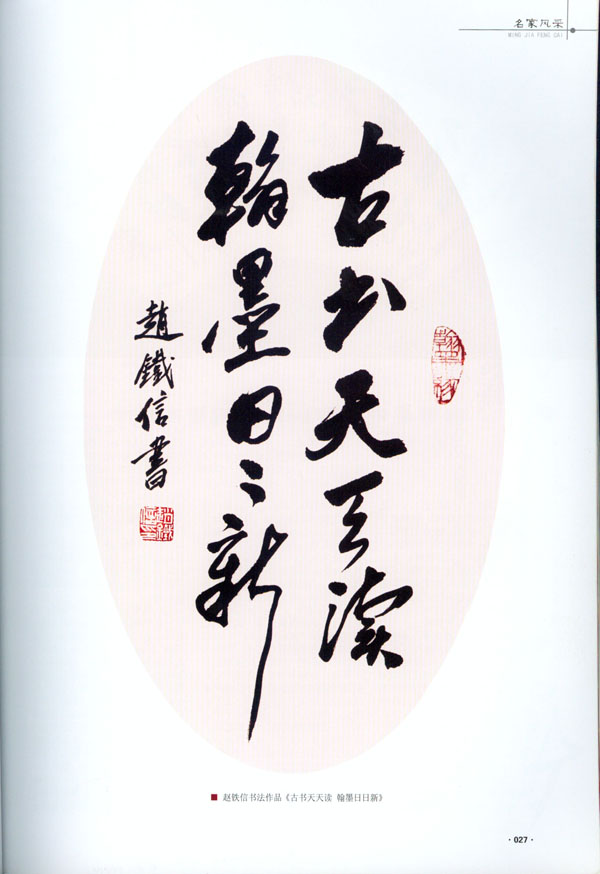 名家风采
MING JIA FENG CAI
古书天天读
翰墨日々新
趙鐵信書
■ 赵铁信书法作品《古书天天读 翰墨日日新》
·027·